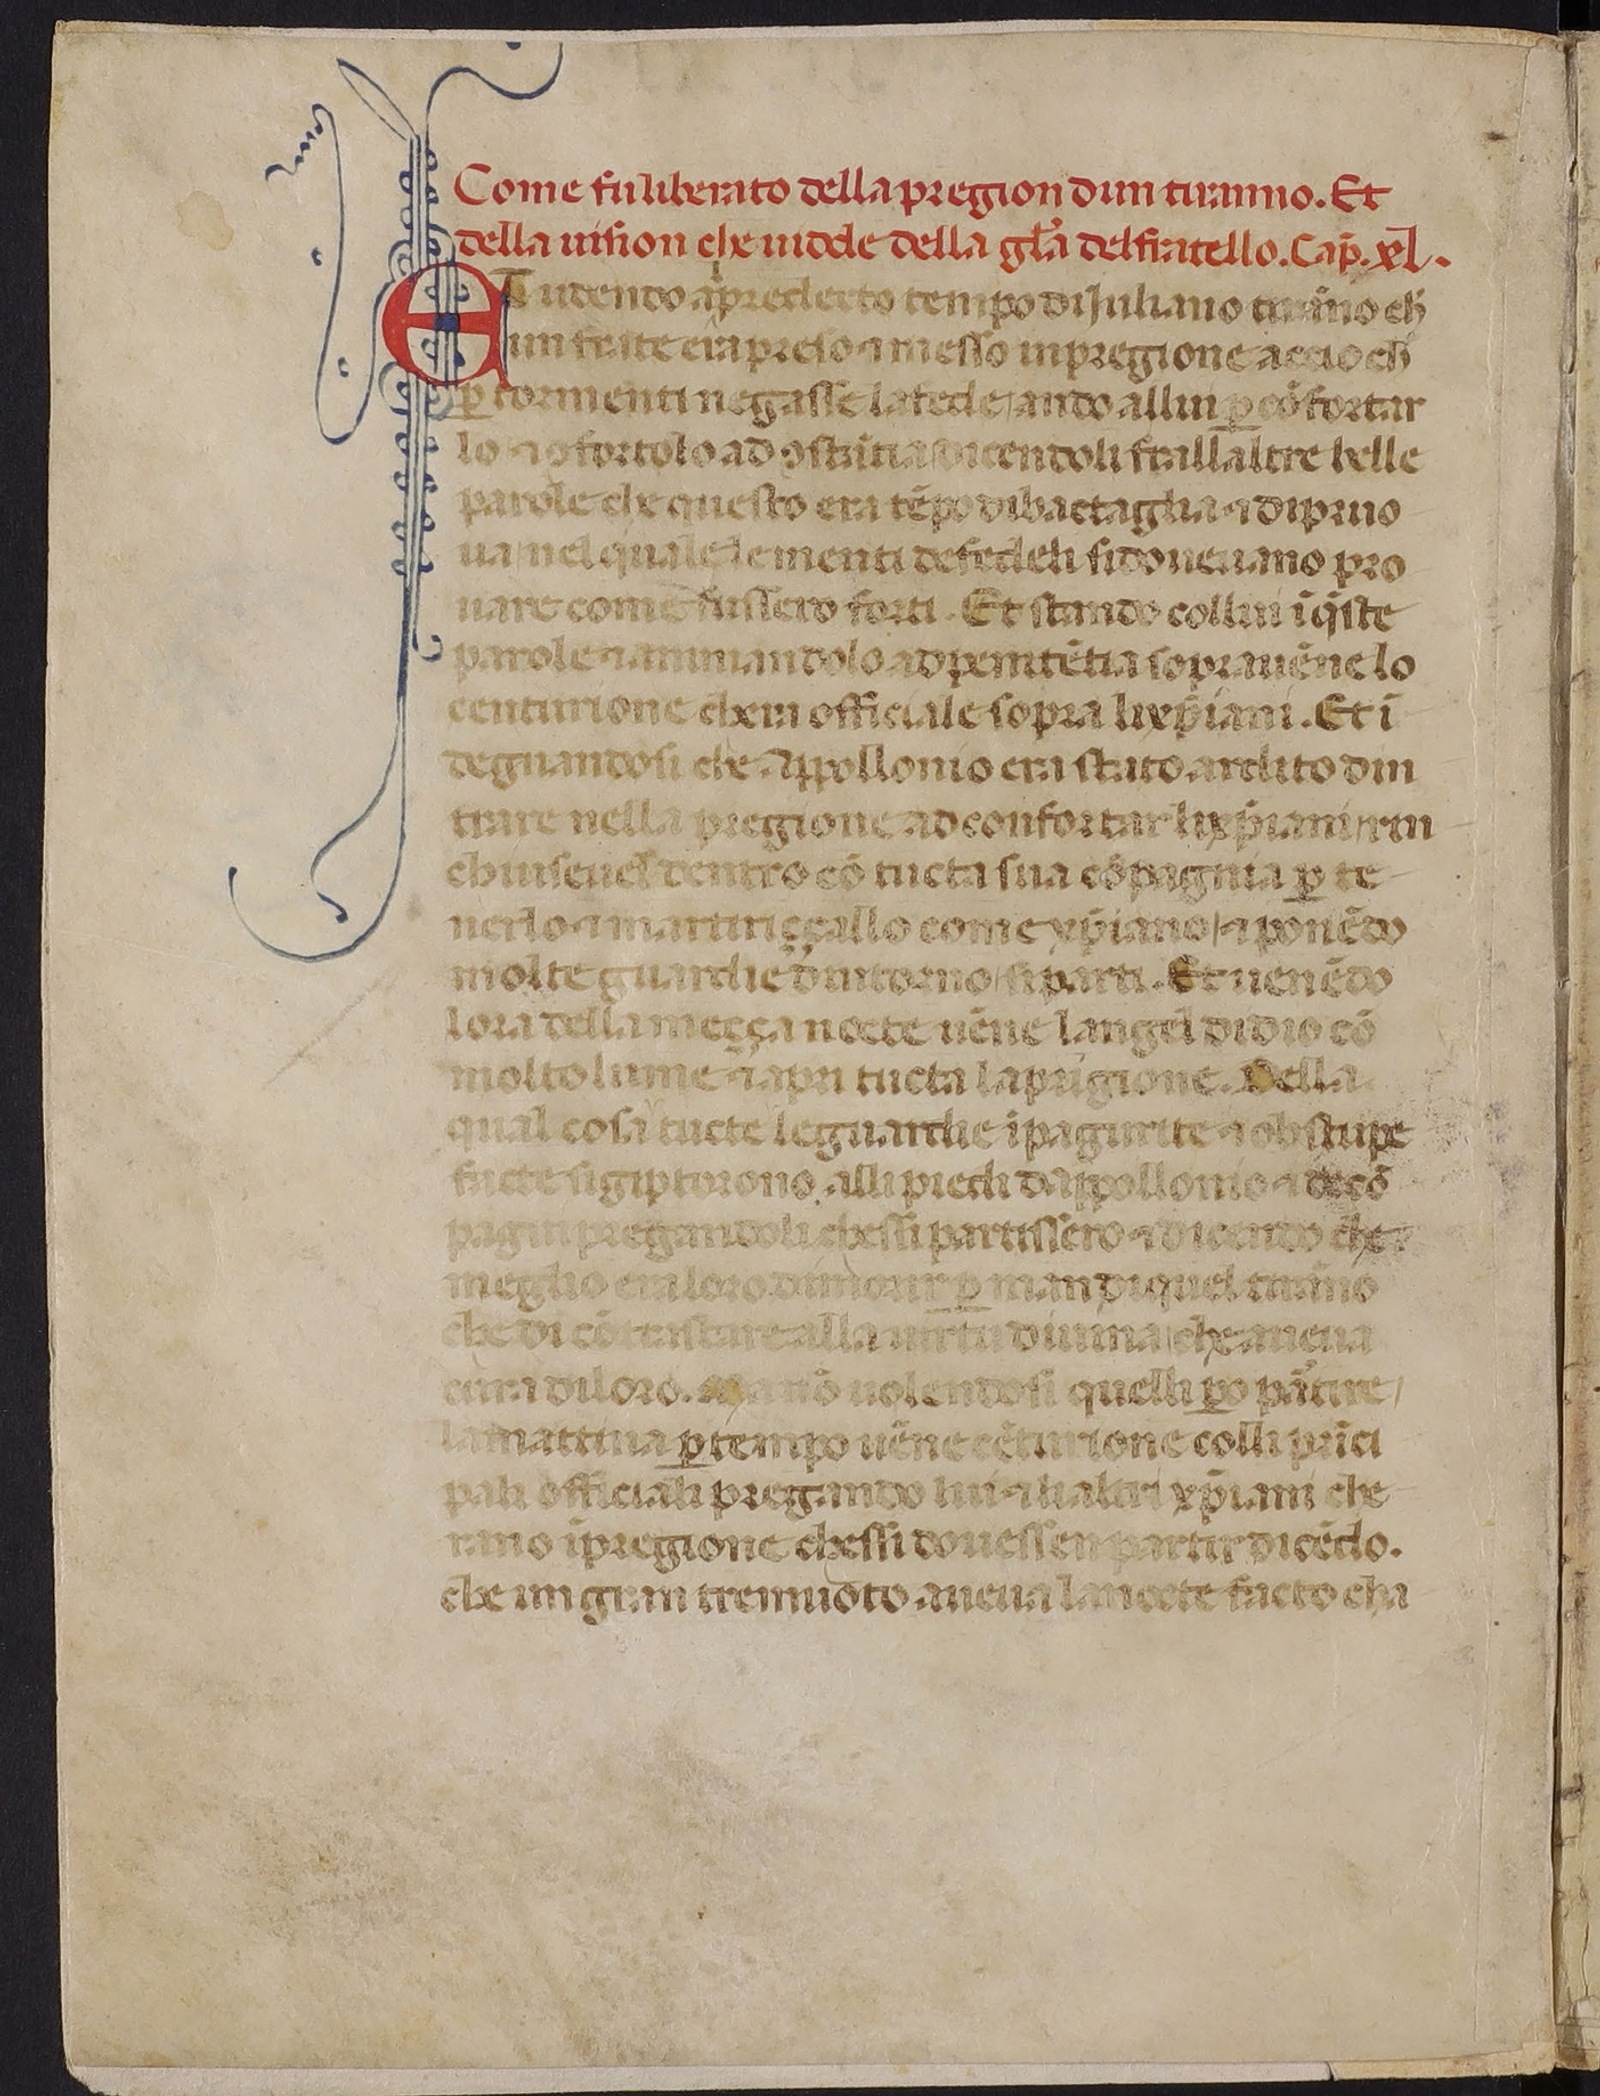 Come fu liberato della pregion dun tiranno. Et
della uision che uidde della gl̃a del fratello. Cap̃. xl.
ET udendo a p̃redecto tempo di Juliano tirãno ch̃
un frate era preso ⁊ messo in pregione accio ch̃
ꝑ tormenti negasse la fede / ando allui ꝑ cõfortar
lo ⁊ ꝯfortolo ad ꝯstãtia / dicendoli frallaltre belle
parole che questo era tẽpo di bactaglia ⁊ di pruo
ua / nel quale le menti de fedeli si doueuano pro
uare come fussero forti. Et stando collui ĩ q̃ste
parole ⁊ animandolo ad penitẽtia soprauẽne lo
centurione chera officiale sopra li xp̃iani. Et ĩ
degnandosi che Appollonio era stato ardito din
trare nella pregione ad confortar li xp̃iani / rin
chiuseuel dentro cõ tucta sua cõpagnia ꝑ te
nerlo ⁊ martiriççallo come xp̃iano / ⁊ ponẽdo
molte guardie dintorno / si parti. Et uenẽdo
lora della meçça nocte uẽne langel di dio cõ
molto lume ⁊ apri tucta la prigione. Della
qual cosa tucte le guardie ĩpaurite ⁊ obstupe
facte si giptorono alli piedi dAppollonio ⁊ de cõ
pagni pregandoli chessi partissero ⁊ dicendo che
meglio era loro di morir ꝑ man di quel tirãno
che di cõtrastare alla uirtu diuina / che aueua
cura di loro. Ma nõ uolendosi quelli ꝑo partire /
la mattina ꝑ tempo uẽne cẽturione colli prĩci
pali officiali pregando lui ⁊ li altri xp̃iani che
rano ĩ pregione chessi douessen partir dicẽdo.
che un gran tremuoto aueua la nocte facto cha